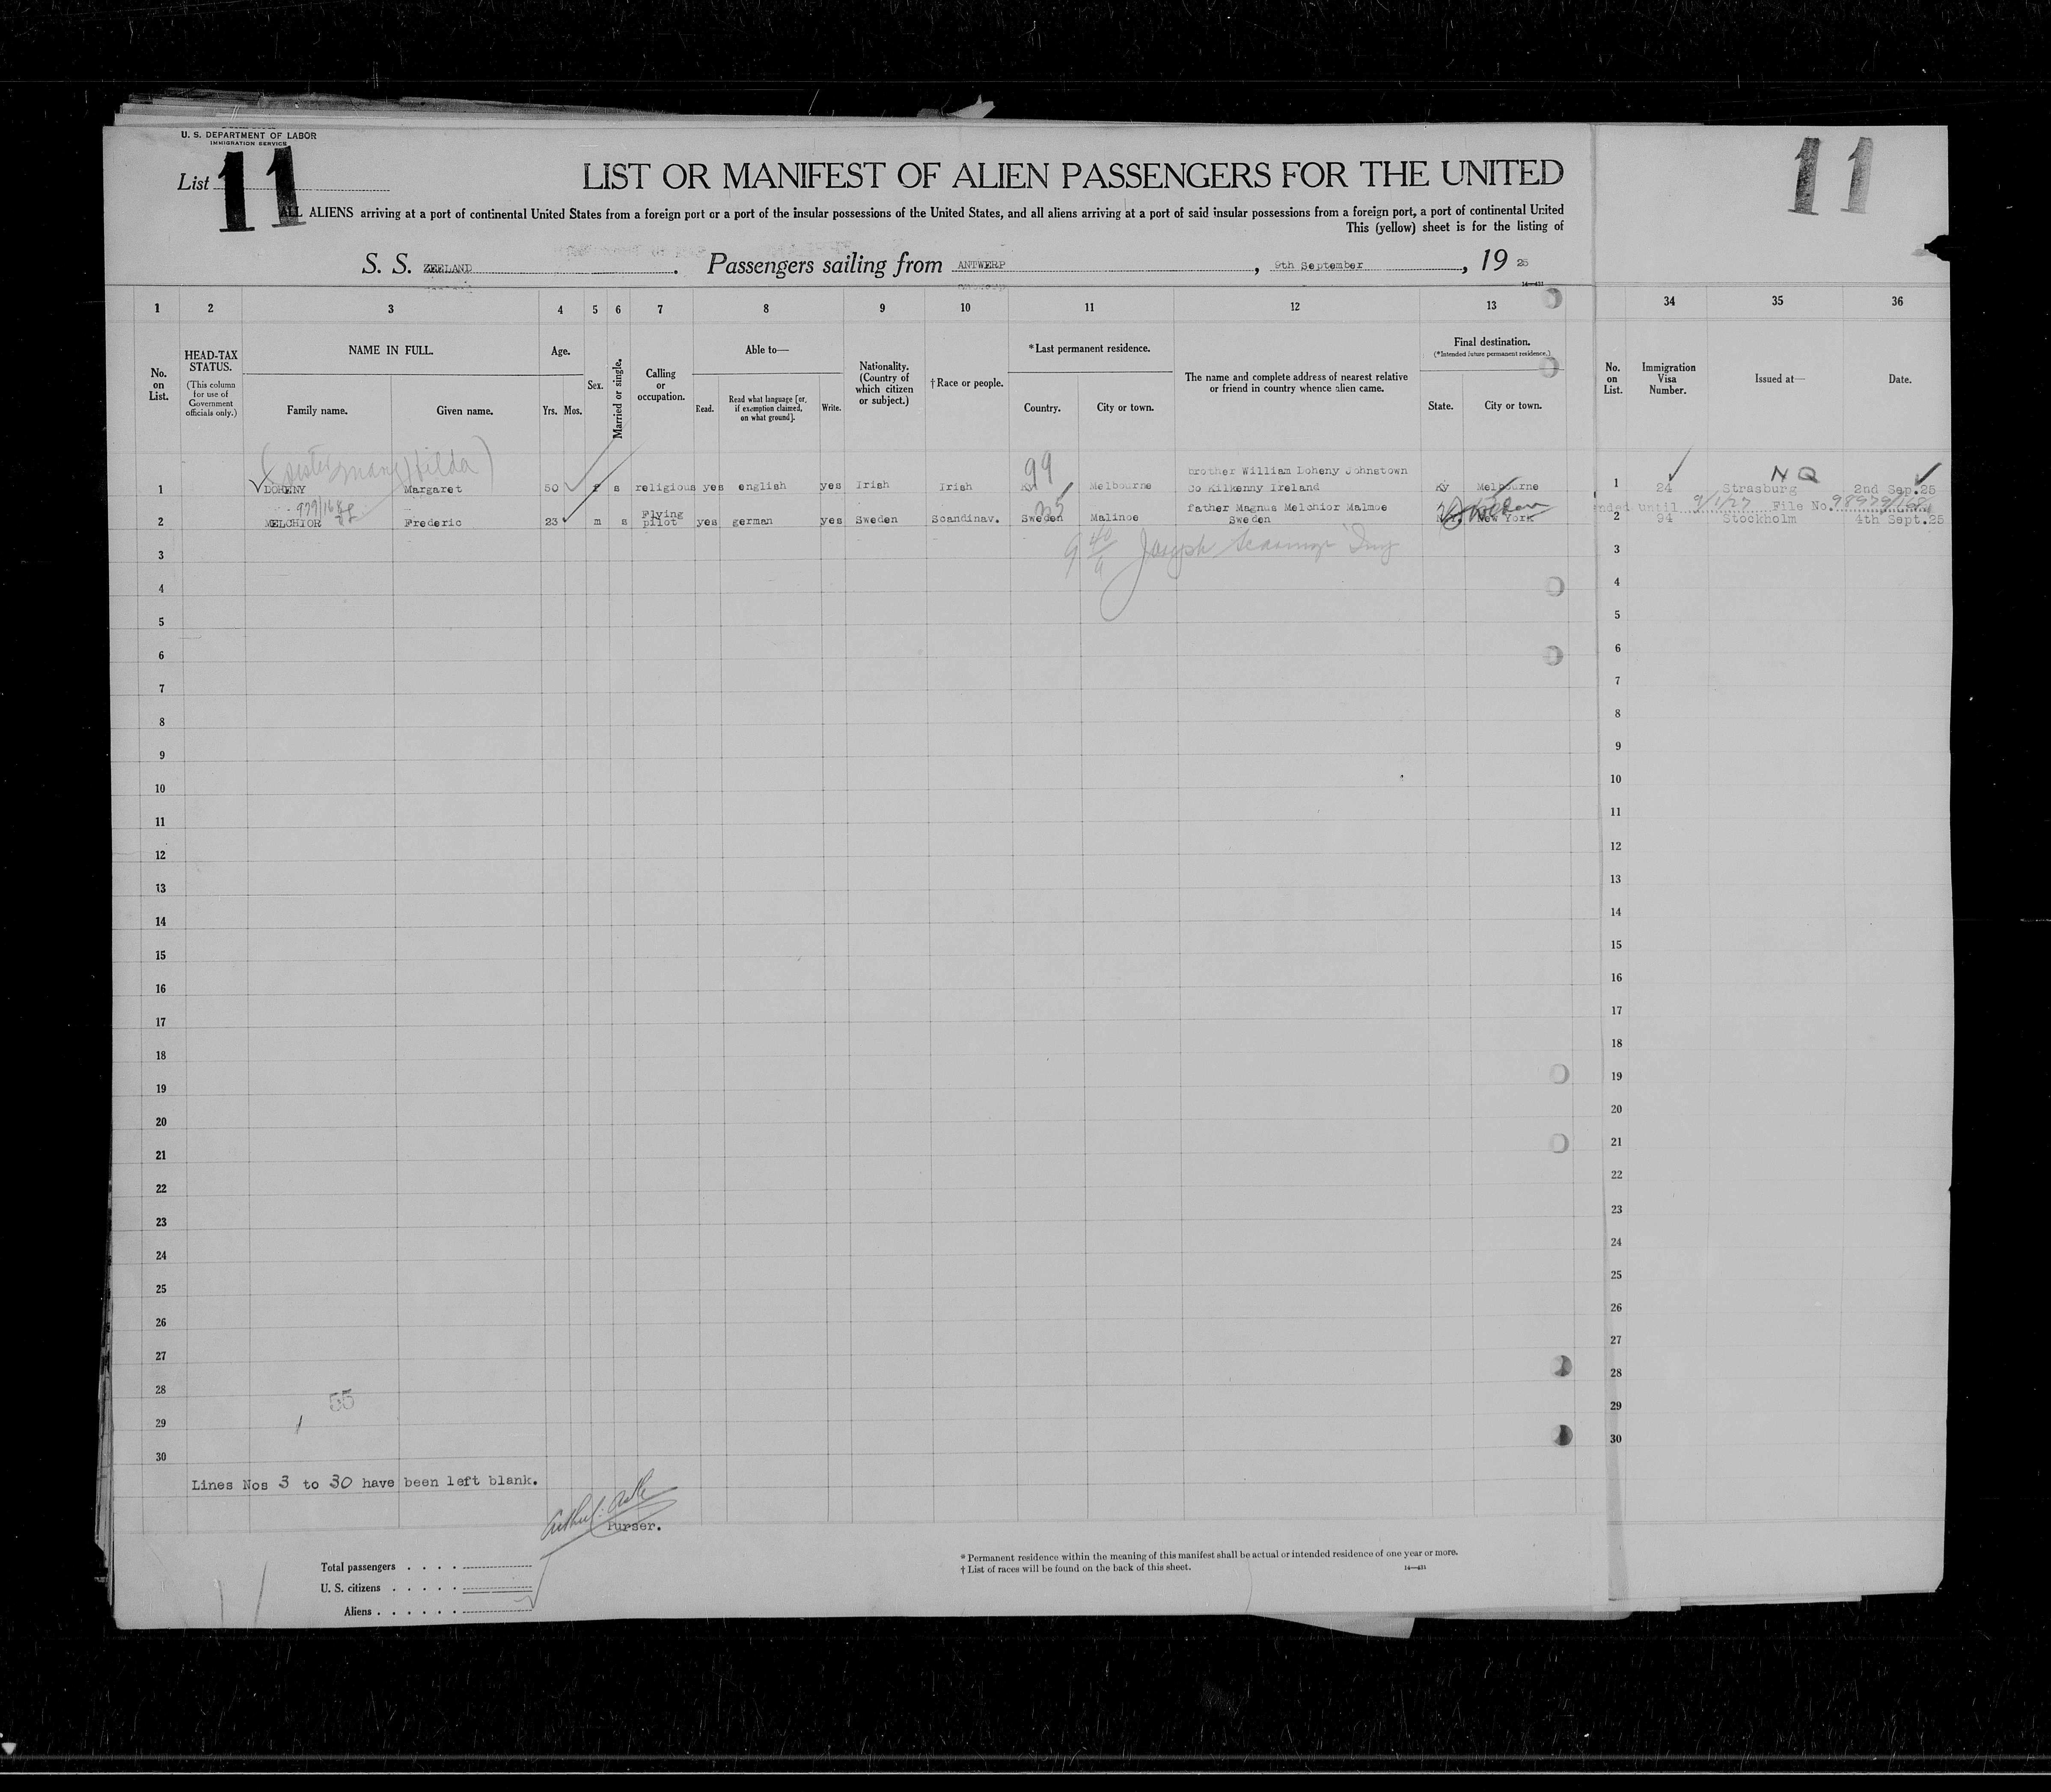 U. S. DEPARTMENT OF LABOR
IMMIGRATION SERVICE
List 11
11
LIST OR MANIFEST OF ALIEN PASSENGERS FOR THE UNITED
ALL ALIENS arriving at a port of continental United States from a foreign port or a port of the insular possessions of the United States, and all aliens arriving at a port of said insular possessions from a foreign port, a port of continental United
This (yellow) sheet is for the listing of
S. S. ZEELAND . Passengers sailing from ANTWERP , 9th September , 19 25
14—431
1 2 3 4 5 6 7 8 9 10 11 12 13 34 35 36
No. on List.
HEAD-TAX STATUS.
(This column for use of Government officials only.)
NAME IN FULL.
Family name. Given name.
Age.
Yrs. Mos.
Sex.
Married or single.
Calling or occupation.
Able to—
Read. Read what language [or, if exemption claimed, on what ground]. Write.
Nationality. (Country of which citizen or subject.)
†Race or people.
*Last permanent residence.
Country. City or town.
The name and complete address of nearest relative or friend in country whence alien came.
Final destination.
(*Intended future permanent residence.)
State. City or town.
No. on List.
Immigration Visa Number.
Issued at—
Date.
(Sister Mary Hilda)
99
NQ
1 DOHENY Margaret 50 f s religious yes english yes Irish Irish Ky Melbourne brother William Doheny Johnstown Co Kilkenny Ireland Ky Melbourne 1 24 Strasburg 2nd Sep.25
979/168
nded until 9/1/27 File No. 98979/168
2 MELCHIOR Frederic 23 m s Flying pilot yes german yes Sweden Scandinav. Sweden Malinoe father Magnus Melchior Malmoe Sweden N.Y. New York 2 94 Stockholm 4th Sept.25
Joseph
3 3
4 4
5 5
6 6
7 7
8 8
9 9
10 10
11 11
12 12
13 13
14 14
15 15
16 16
17 17
18 18
19 19
20 20
21 21
22 22
23 23
24 24
25 25
26 26
27 27
28 28
55
29 29
30 30
Lines Nos 3 to 30 have been left blank.
Purser.
Total passengers . . . .
U. S. citizens . . . . .
Aliens . . . . . .
* Permanent residence within the meaning of this manifest shall be actual or intended residence of one year or more.
† List of races will be found on the back of this sheet.
14—431